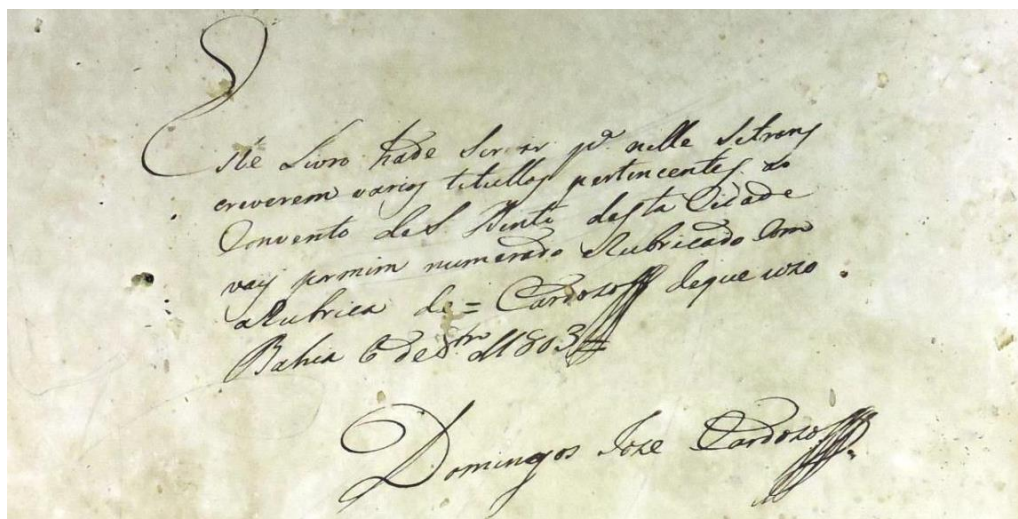 Este Livro hade servir pª nelle setrans
creverem varios titullos pertencentes ao
Convento de S. Bento desta Cidade
vay pormim numerado eRubricado Com
aRubrica de = Cardozo deque uzo
Bahia 6 de 8bro d1803 =
Domingos Joze Cardozo